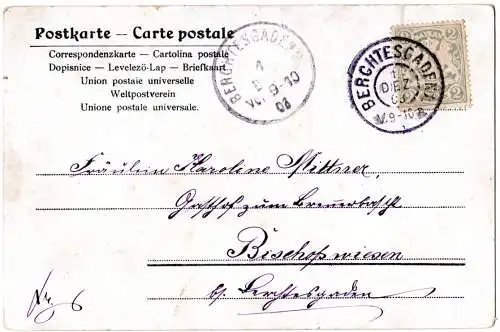 Postkarte — Carte postale
Correspondenzkarte — Cartolina postale
Dopisnice — Levelező-Lap — Briefkaart
Union postale universelle
Weltpostverein
Unione postale universale.
BERCHTESGADEN
1
V. 9-10
03
BERCHTESGADEN
1
DEZ
03
V. 9-10
2
2
Fräulein Karoline Mittner,
Gasthof zum
Bischofswiesen
b/ Berchtesgaden